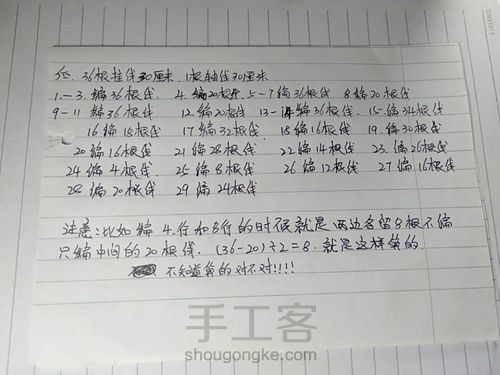 36根挂线30厘米 1根轴线30厘米
1.-3.编36根线 4.编20根线 5-7编36根线 8编20根线
9-11编36根线 12编20根线 13-14编36根线 15编34根线
16编18根线 17编32根线 18编16根线 19编30根线
20编16根线 21编28根线 22编14根线 23.编26根线
24编4根线 25编8根线 26编12根线 27编16根线
28编20根线 29编24根线
注意:比如编4行和8行的时候就是两边各留8根不编
只编中间的20根线.(36-20)÷2=8.就是这样算的.
不知道算的对不对!!!!
手工客
shougongke.com